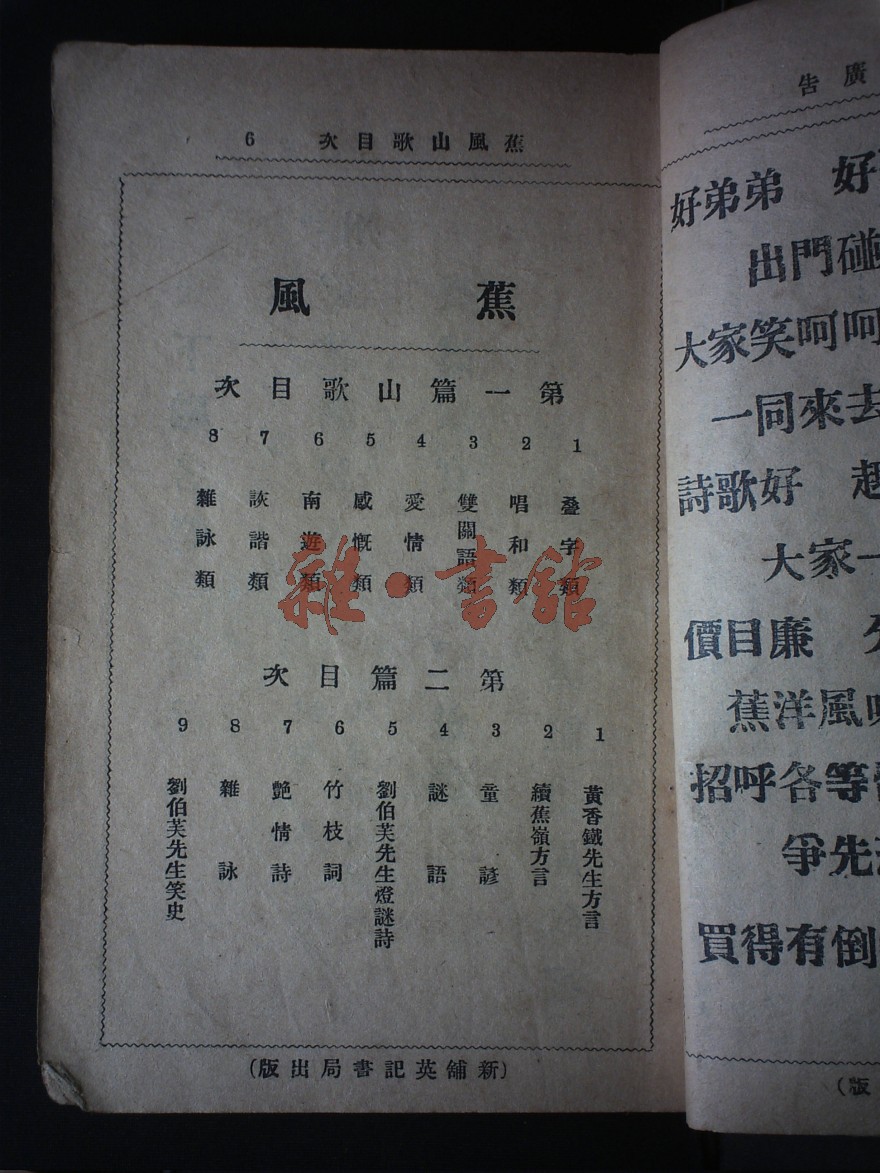 蕉風山歌目次 6
蕉風
第一篇山歌目次
1 叠字類
2 唱和類
3 雙關語類
4 愛情類
5 感慨類
6 南遊類
7 詼諧類
8 雜詠類
第二篇目次
1 黃香鐵先生方言
2 續蕉嶺方言
3 童諺
4 謎語
5 劉伯芙先生燈謎詩
6 竹枝詞
7 艷情詩
8 雜詠
9 劉伯芙先生笑史
(新舖英記書局出版)
雜·書館
廣告
好弟弟 好
出門碰
大家笑呵呵
一同來去
詩歌好
大家一
價目廉
蕉洋風
招呼各等
爭先
買得有倒
版)